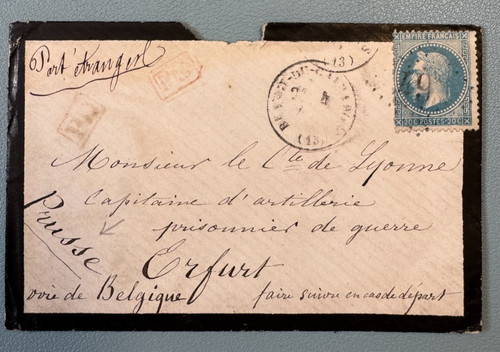 Port étranger
P.D.
(13)
EMPIRE FRANÇAIS
20C POSTES 20C
(13)
Monsieur le Cte de Lyonne
Capitaine d'artillerie
prisonnier de guerre
Prusse
Erfurt
voie de Belgique
faire suivre en cas de départ